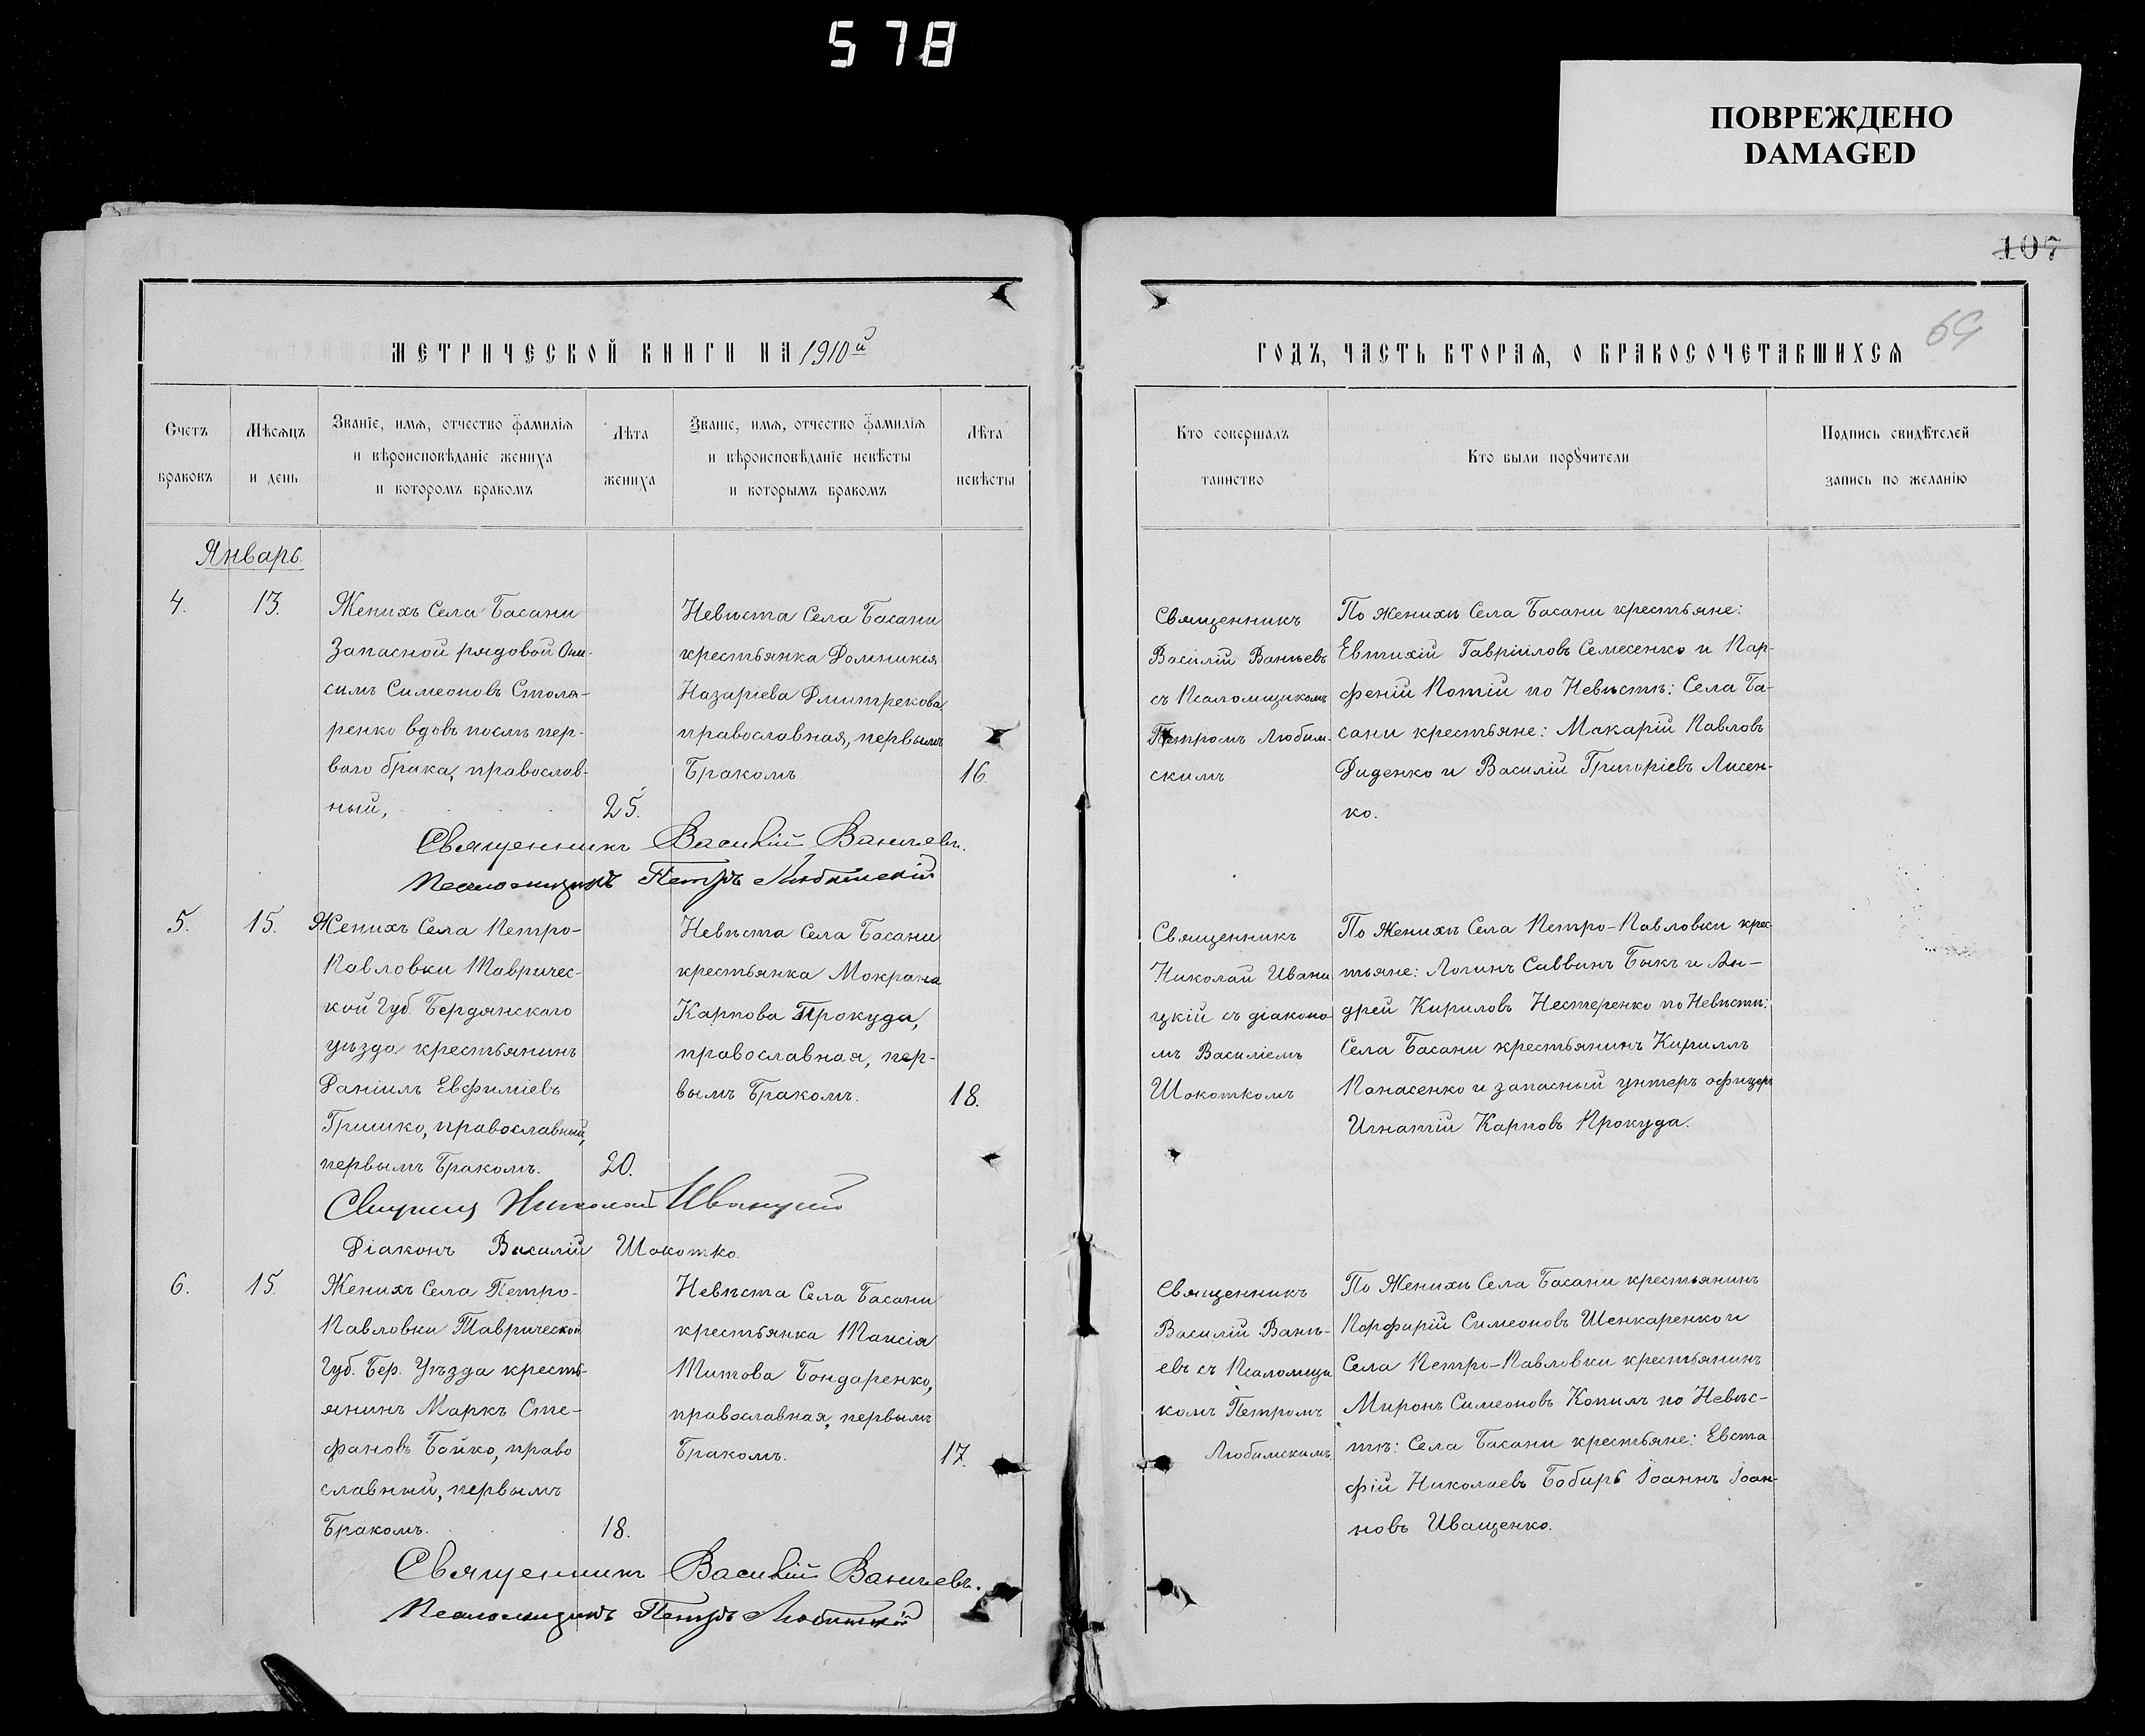 578
ПОВРЕЖДЕНО
DAMAGED
107
69
МЕТРИЧЕСКОЙ КНИГИ НА 1910й
ГОДЪ, ЧАСТЬ ВТОРАЯ, О БРАКОСОЧЕТАВШИХСЯ
Счетъ
браковъ
Мѣсяцъ
и день
Званіе, имя, отчество фамилія
и вѣроисповѣданіе жениха
и которомъ бракомъ
Лѣта
жениха
Званіе, имя, отчество фамилія
и вѣроисповѣданіе невѣсты
и которымъ бракомъ
Лѣта
невѣсты
Кто совершалъ
таинство
Кто были поручители
Подпись свидѣтелей
запись по желанію
Январь.
4.
13.
Женихъ Села Басани
Запасной рядовой Они-
симъ Симеоновъ Столя-
ренко вдовъ послѣ пер-
ваго брака, православ-
ный,
25.
Невѣста Села Басани
крестьянка Домникія
Назаріева Дмитрекова,
православная, первымъ
Бракомъ
16.
Священникъ
Василій Ваньевъ
съ Псаломщикомъ
Петромъ Любим-
скимъ
По Женихѣ Села Басани крестьяне:
Евтихій Гавріиловъ Семесенко и Пар-
феній Потій по Невѣстѣ: Села Ба-
сани крестьяне: Макарій Павловъ
Диденко и Василій Григоріевъ Лисен-
ко.
Священникъ Василій Ваньевъ.
Псаломщикъ Петръ Любимскій
5.
15.
Женихъ Села Петро-
Павловки Тавричес-
кой Губ. Бердянскаго
уѣзда крестьянинъ
Даніилъ Евфиміевъ
Гришко, православный,
первымъ Бракомъ.
20.
Невѣста Села Басани
крестьянка Мокрана
Карпова Прокуда,
православная, пер-
вымъ Бракомъ.
18.
Священникъ
Николай Ивани
цкій съ діаконо
мъ Василіемъ
Шокоткомъ
По Женихѣ Села Петро-Павловки крес
тьяне: Логинъ Саввинъ Быкъ и Ан-
дрей Кириловъ Нестеренко по Невѣстѣ:
Села Басани крестьянинъ Кириллъ
Панасенко и запасный унтеръ офицеръ
Игнатій Карповъ Прокуда.
Николай Иваницкій
Діаконъ Василій Шокотко.
6.
15.
Женихъ Села Петро-
Павловки Таврической
Губ. Бер. Уѣзда кресть-
янинъ Маркъ Сте-
фановъ Бойко, право
славный, первымъ
Бракомъ.
18.
Невѣста Села Басани
крестьянка Таисія
Титова Бондаренко,
православная, первымъ
Бракомъ.
17.
Священникъ
Василій Вань-
евъ съ Псаломщи
комъ Петромъ
Любимскимъ.
По Женихѣ Села Басани крестьянинъ
Порфирій Симеоновъ Шенкаренко и
Села Петро-Павловки крестьянинъ
Миронъ Симеоновъ Копилъ по Невѣс-
тѣ: Села Басани крестьяне: Евста
фій Николаевъ Бобирь Іоаннъ Іоан-
новъ Иващенко.
Священникъ Василій Ваньевъ.
Псаломщикъ Петръ Любимскій